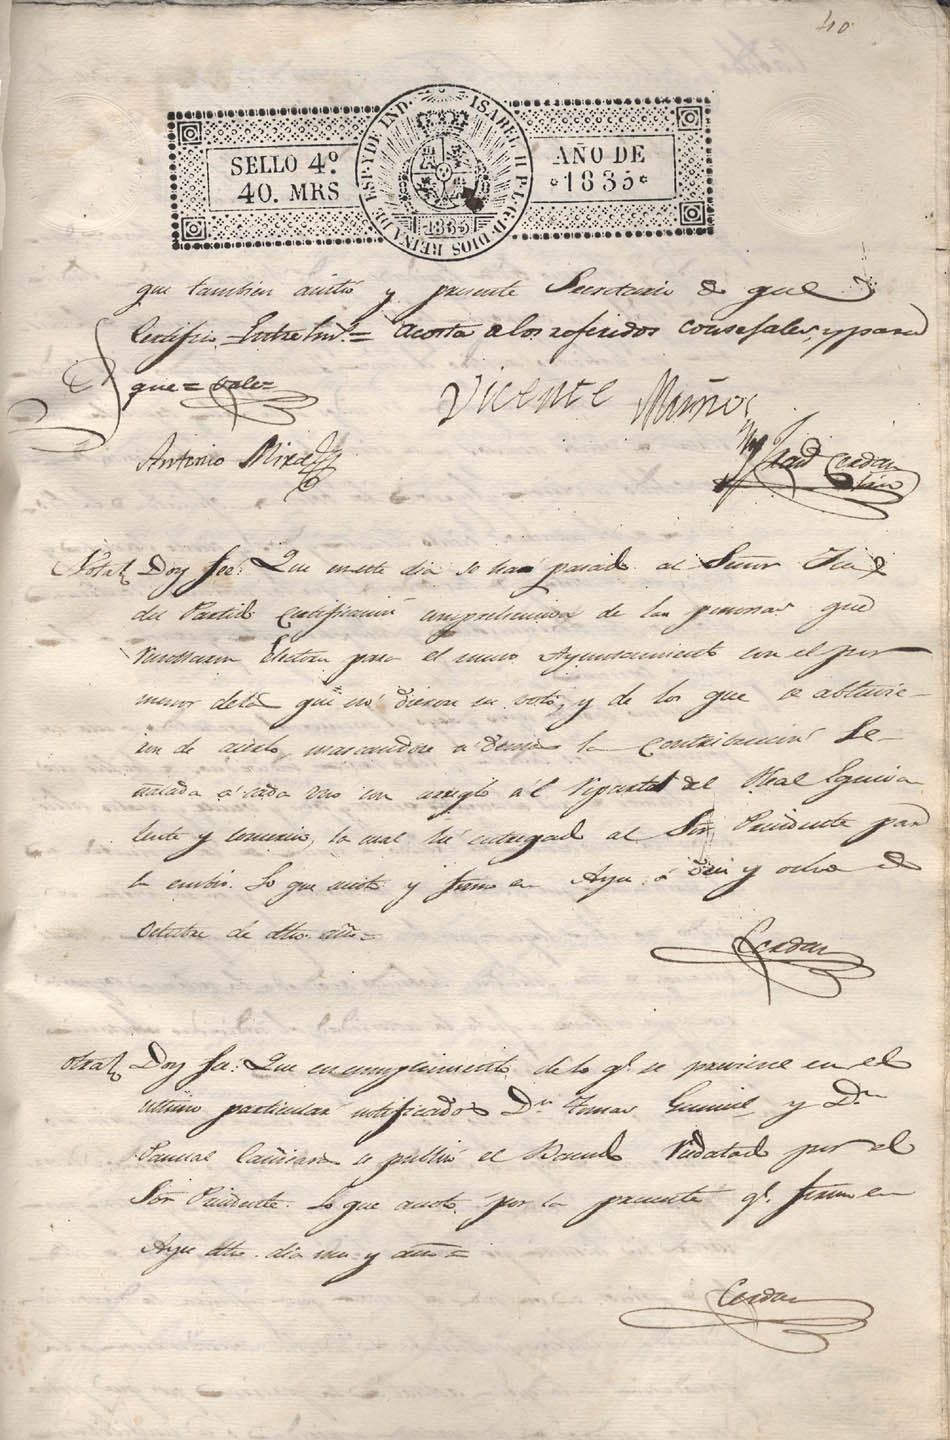 40
SELLO 4º
40. MRS
ISABEL II P. L. G. D. DIOS REINA DE ESP. Y DE IND.
1835
AÑO DE
1835
que tambien asistio y presente Secretario de que
Certifico = Entre lin.s = acosta a los referidos consejales, y para
que = vale =
Vicente Muños
Antonio Mira
Cerdan
Srio
Nota Doy fee: Que en este dia se ha pasado al Señor Juez
del Partido Certificacion comprehensiva de las personas que
Electores para el nuevo Ayuntamiento con el por
menor de los que no dieron su voto, y de los que se abstuvie-
ron de acerlo, marcandose a demas la contribucion Se-
ñalada a cada uno con arreglo al Reparto del Real Equiva
lente y comercio, la cual hé entregado al Sor. Presidente para
la embie. Lo que anoto y firmo en Aspe á diez y ocho de
Octubre de dho. año =
Cerdan
Otra Doy fee: Que en cumplimiento de lo q.e se previene en el
ultimo particular notificados Dn. Tomas y Dn.
Pascual Cañizares se publicó el Bando redatado por el
Sor Presidente. Lo que anoto por la presente q.e firmo en
Aspe dho. dia mes y año =
Cerdan